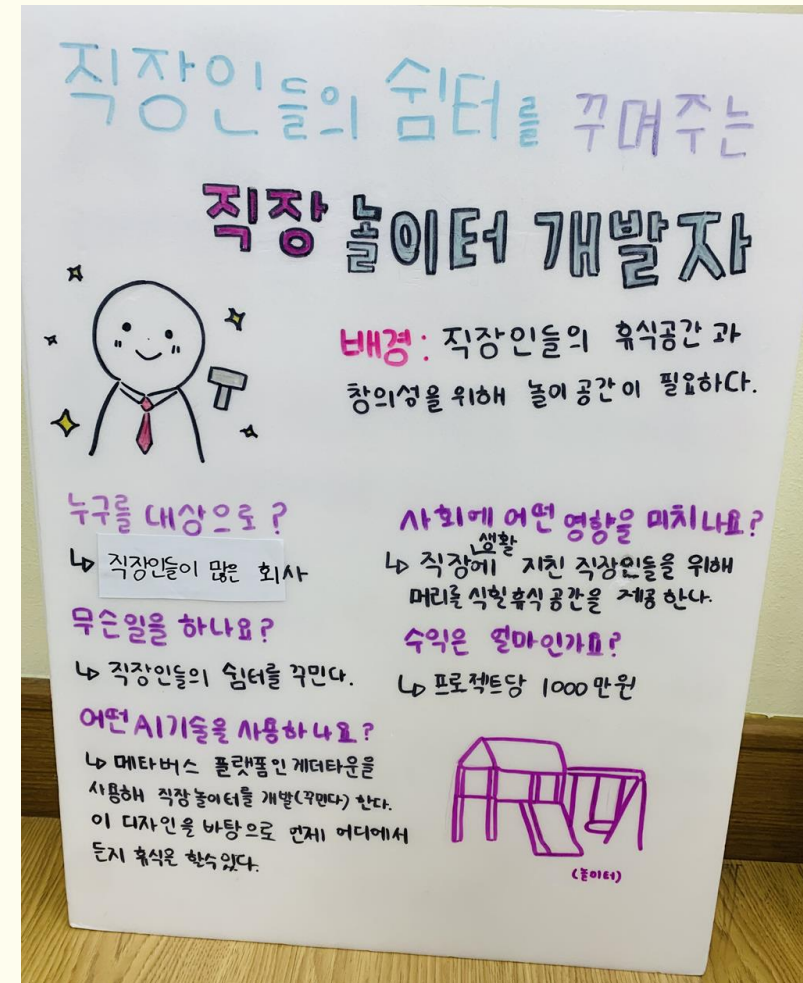 직장인들의 쉼터를 꾸며주는
직장 놀이터 개발자
배경: 직장인들의 휴식공간 과
창의성을 위해 놀이 공간이 필요하다.
누구를 대상으로?
↳ 직장인들이 많은 회사
무슨일을 하나요?
↳ 직장인들의 쉼터를 꾸민다.
어떤 AI기술을 사용하나요?
↳ 메타버스 플랫폼인 게더타운을
사용해 직장 놀이터를 개발(꾸민다) 한다.
이 디자인을 바탕으로 언제 어디에서
든지 휴식은 할수있다.
사회에 어떤 영향을 미치나요?
생활
↳ 직장에 지친 직장인들을 위해
머리를 식힐 휴식 공간을 제공 한다.
수익은 얼마인가요?
↳ 프로젝트당 1000만원
(놀이터)